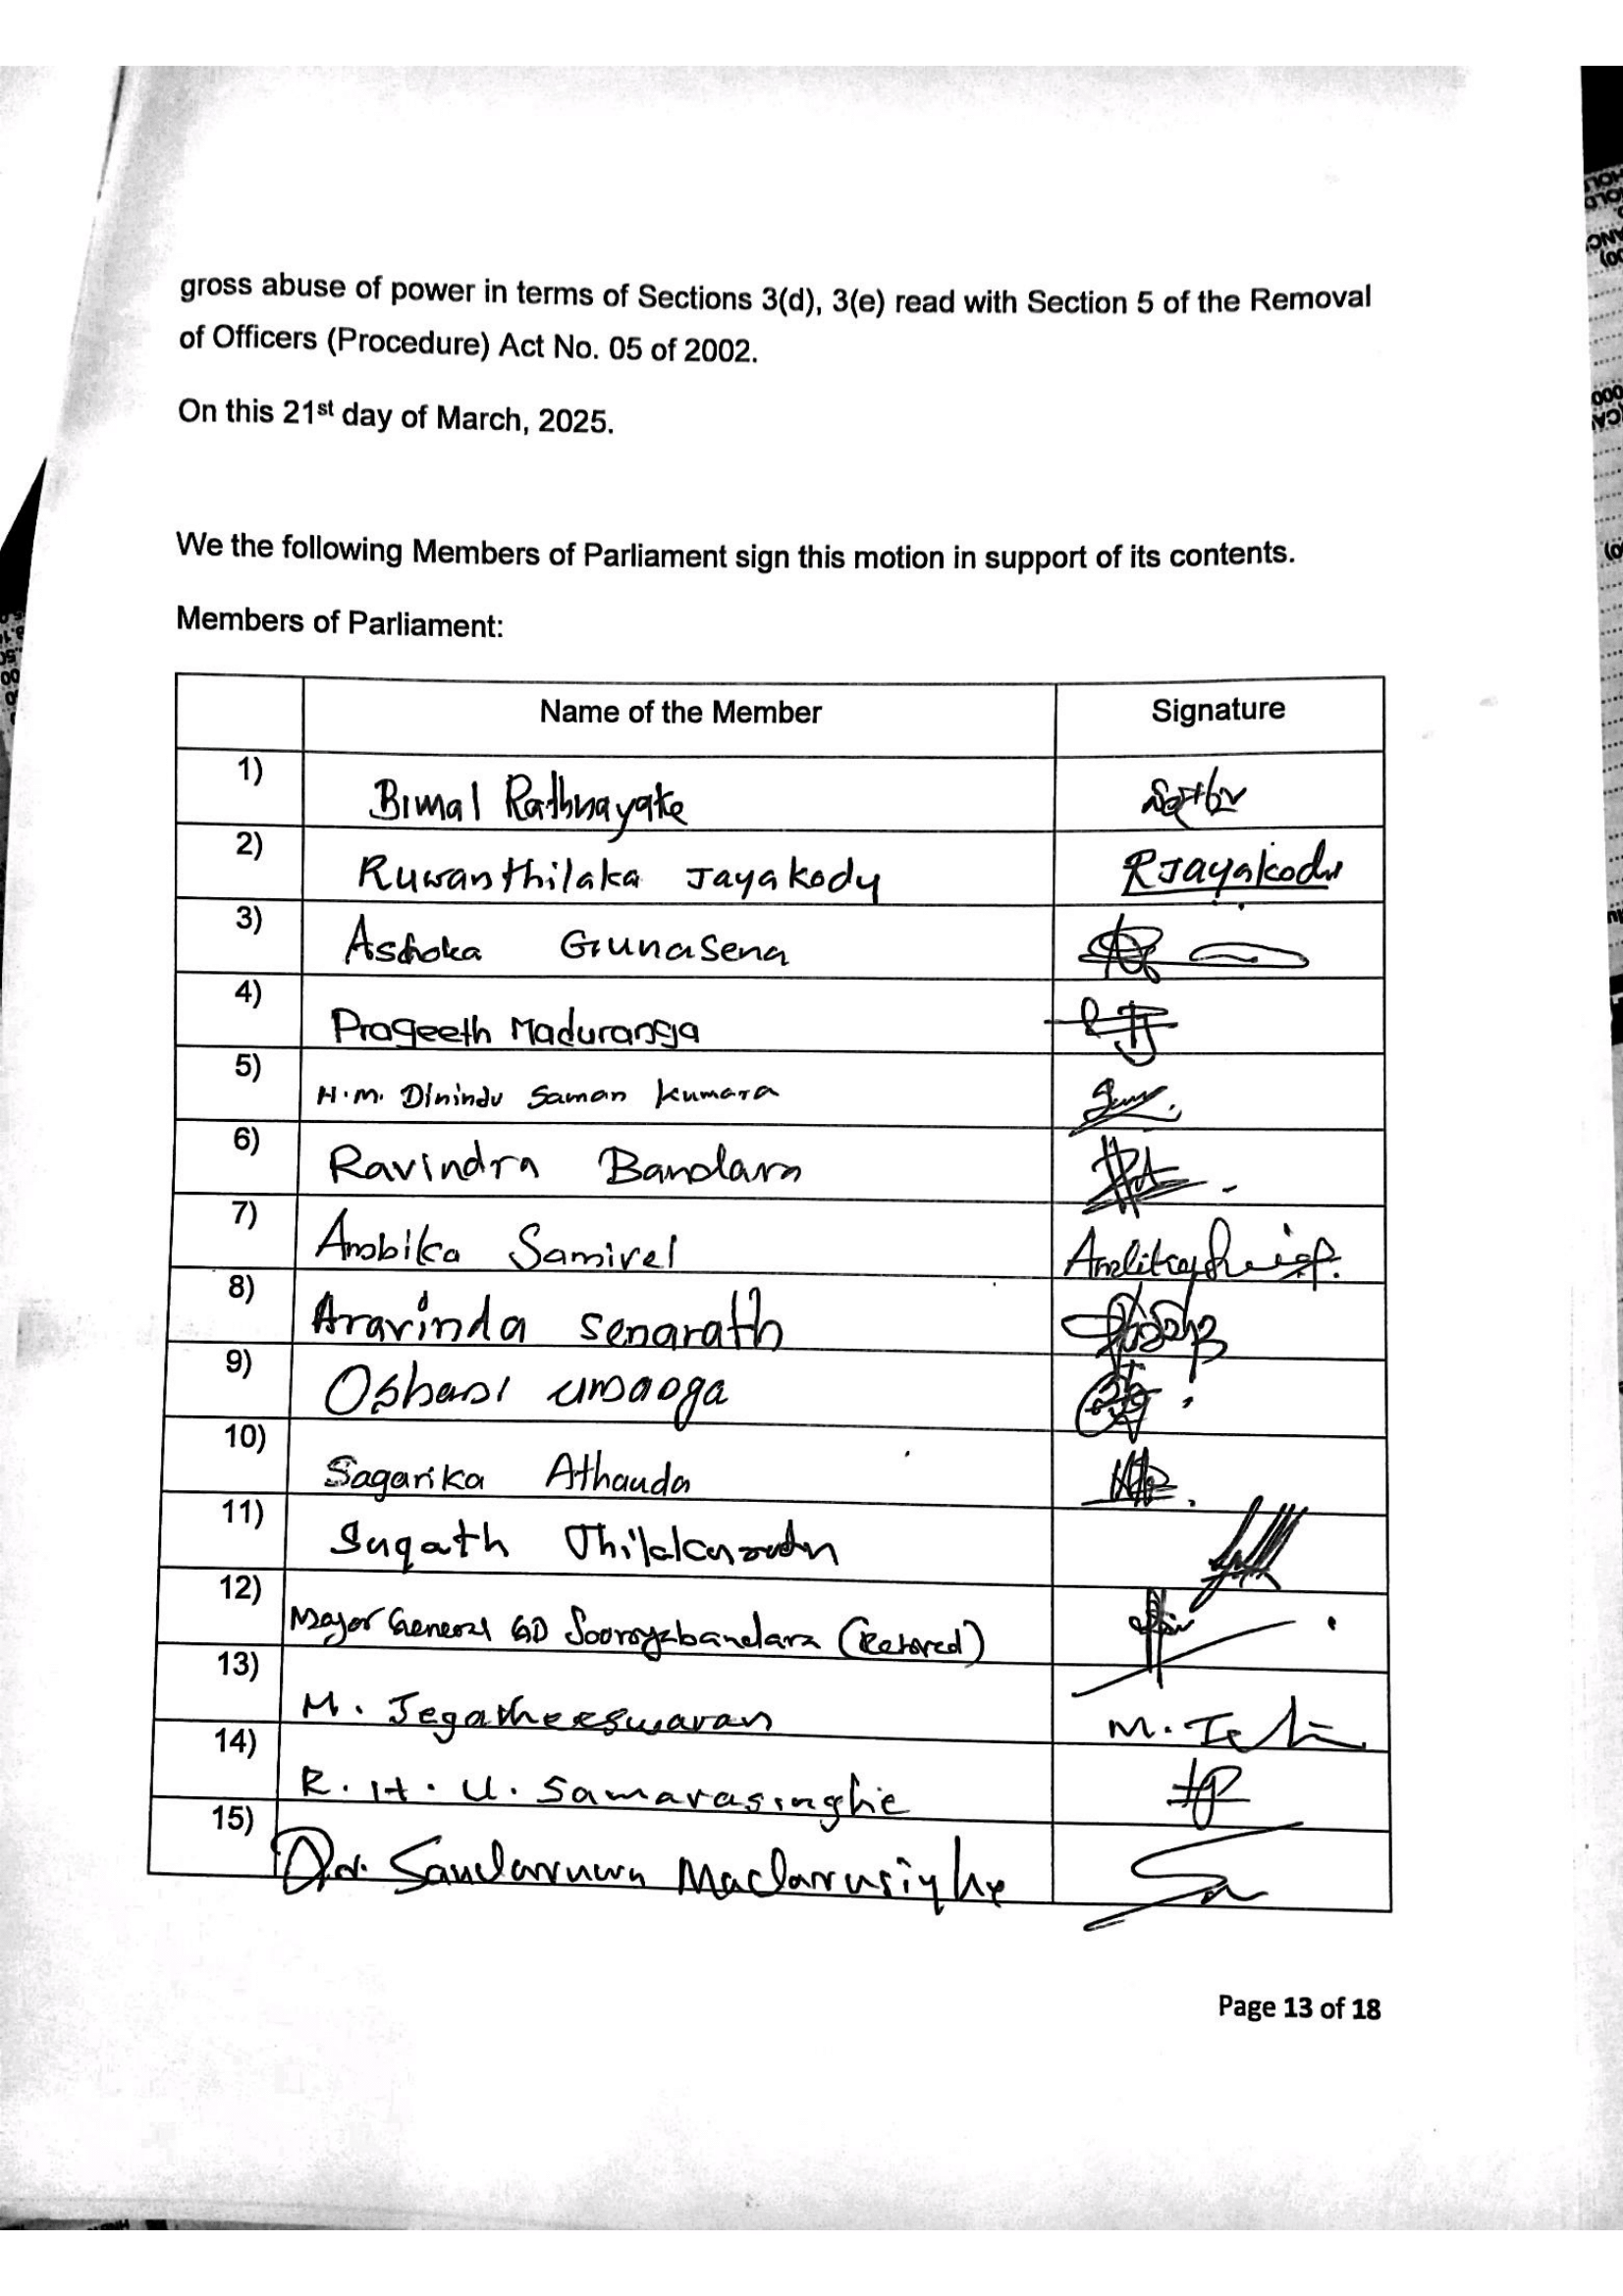 gross abuse of power in terms of Sections 3(d), 3(e) read with Section 5 of the Removal
of Officers (Procedure) Act No. 05 of 2002.
On this 21st day of March, 2025.
We the following Members of Parliament sign this motion in support of its contents.
Members of Parliament:
Name of the Member Signature
1) Bimal Rathnayake
2) Ruwanthilaka Jayakody RJayakody
3) Ashoka Gunasena
4) Prageeth Maduranga
5) H.M. Dinindu Saman Kumara
6) Ravindra Bandara
7) Ambika Samivel
8) Aravinda Senarath
9) Oshani Umanga
10) Sagarika Athauda
11) Sugath
12) Major General GD Sooroyabandara (Retired)
13) M. Jegatheeswaran
14) R. H. U. Samarasinghe
15) Dr. Sandaruwan Madarasinghe
Page 13 of 18